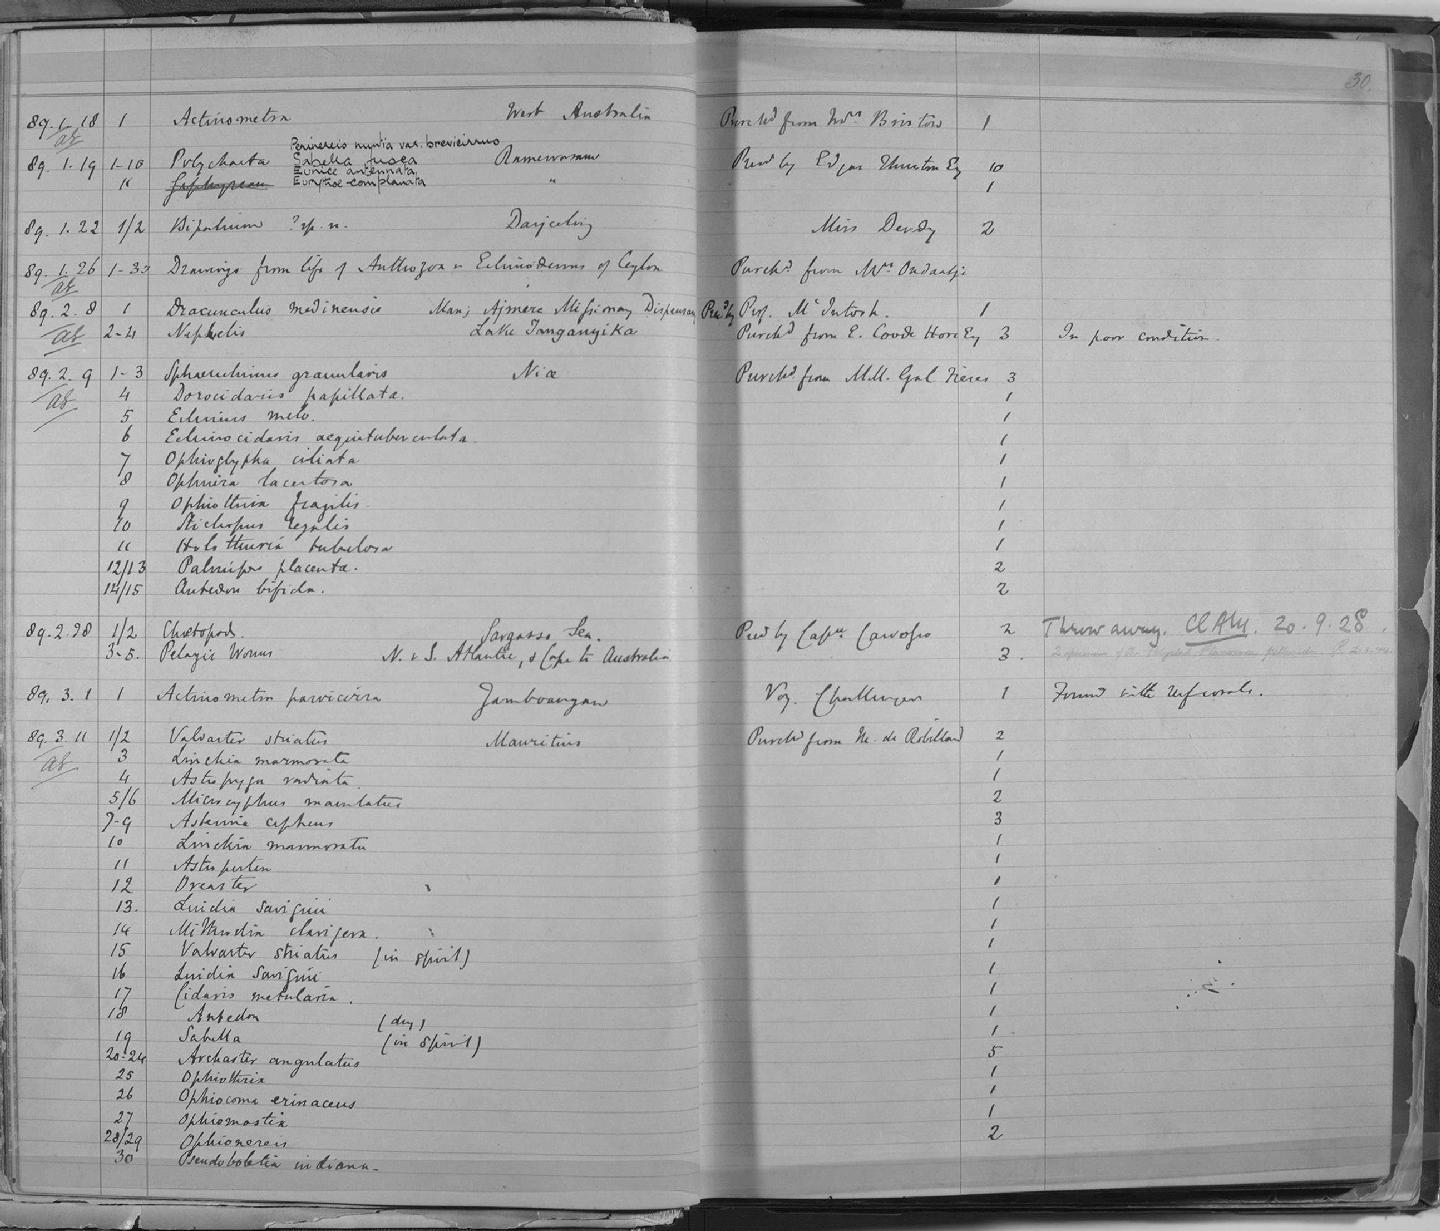 30.
89.1.18 1 Actinometra West Australia Purchd from Mrs Bristow 1
Perinereis nuntia var. brevicirrus
89.1.19 1-10 Polychaeta Sabella fusca Rameswaram Presd by Edgar Thurston Esq 10
Eunice antennata
11 Gephyrean Eurythoe complanata " 1
89.1.22 1/2 Bipalium ? sp. n. Darjeeling Miss Dendy 2
89.1.26 1-33 Drawings from life of Anthozoa & Echinoderms of Ceylon Purchd from Mrs Ondaatje
89.2.8 1 Dracunculus medinensis Man; Ajmere Missionary Dispensary Presd by Prof. McIntosh. 1
2-4 Nephelis Lake Tanganyika Purchd from E. Coode Hore Esq 3 In poor condition.
89.2.9 1-3 Sphaerechinus granularis Nice Purchd from M.M. Gal Frères 3
4 Dorocidaris papillata. 1
5 Echinus melo. 1
6 Echinocidaris aequituberculata. 1
7 Ophioglypha ciliata 1
8 Ophiura lacertosa 1
9 Ophiothrix fragilis 1
10 Stichopus regalis 1
11 Holothuria tubulosa 1
12/13 Palmipes placenta. 2
14/15 Antedon bifida. 2
89.2.28 1/2 Chaetopods. Sargasso Sea. Presd by Capn Carvosso 2 Throw away. 20.9.28.
3-5. Pelagic Worms N. & S. Atlantic, & Cape to Australia 3.
89.3.1 1 Actinometra parvicirra Zamboangan Voy. Challenger 1 Found with refusals.
89.3.11 1/2 Valvaster striatus Mauritius Purchd from M. de Robillard 2
3 Linckia marmorata 1
4 Astropyga radiata 1
5/6 Microcyphus maculatus 2
7-9 Asterina cepheus 3
10 Linckia marmorata 1
11 Astropecten 1
12 Oreaster 1
13. Luidia Savignii 1
14 Mithrodia clavigera. 1
15 Valvaster striatus (in spirit) 1
16 Luidia Savignii 1
17 Cidaris metularia. 1
18 Antedon (dry) 1
19 Sabella (in spirit) 1
20-24 Archaster angulatus 5
25 Ophiothrix 1
26 Ophiocoma erinaceus 1
27 Ophiomastix 1
28/29 Ophionereis 2
30 Pseudoboletia indiana.